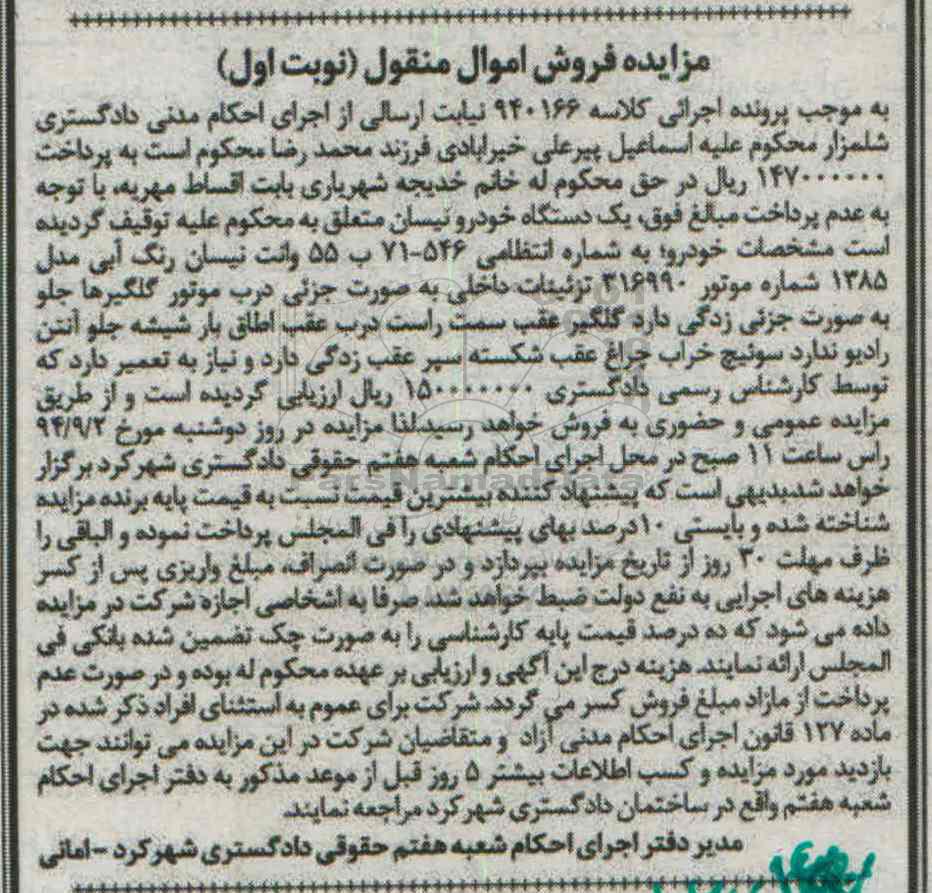 مزایده فروش اموال منقول (نوبت اول)
به موجب پرونده اجرائی کلاسه ۹۴۰۱۶۶ نیابت ارسالی از اجرای احکام مدنی دادگستری
شلمزار محکوم علیه اسماعیل پیرعلی خیرابادی فرزند محمد رضا محکوم است به پرداخت
۱۴۷۰۰۰۰۰۰ ریال در حق محکوم له خانم خدیجه شهریاری بابت اقساط مهریه، با توجه
به عدم پرداخت مبالغ فوق، یک دستگاه خودرو نیسان متعلق به محکوم علیه توقیف گردیده
است مشخصات خودرو؛ به شماره انتظامی ۵۴۶-۷۱ ب ۵۵ وانت نیسان رنگ آبی مدل
۱۳۸۵ شماره موتور ۳۱۶۹۹۰ تزئینات داخلی به صورت جزئی درب موتور گلگیرها جلو
به صورت جزئی زدگی دارد گلگیر عقب سمت راست درب عقب اطاق بار شیشه جلو آنتن
رادیو ندارد سوئیچ خراب چراغ عقب شکسته سپر عقب زدگی دارد و نیاز به تعمیر دارد که
توسط کارشناس رسمی دادگستری ۱۵۰۰۰۰۰۰۰ ریال ارزیابی گردیده است و از طریق
مزایده عمومی و حضوری به فروش خواهد رسید.لذا مزایده در روز دوشنبه مورخ ۹۴/۹/۲
راس ساعت ۱۱ صبح در محل اجرای احکام شعبه هفتم حقوقی دادگستری شهرکرد برگزار
خواهد شد.بدیهی است که پیشنهاد کننده بیشترین قیمت نسبت به قیمت پایه برنده مزایده
شناخته شده و بایستی ۱۰درصد بهای پیشنهادی را فی المجلس پرداخت نموده و الباقی را
ظرف مهلت ۳۰ روز از تاریخ مزایده بپردازد و در صورت انصراف، مبلغ واریزی پس از کسر
هزینه های اجرایی به نفع دولت ضبط خواهد شد. صرفا به اشخاصی اجازه شرکت در مزایده
داده می شود که ده درصد قیمت پایه کارشناسی را به صورت چک تضمین شده بانکی فی
المجلس ارائه نمایند. هزینه درج این آگهی و ارزیابی بر عهده محکوم له بوده و در صورت عدم
پرداخت از مازاد مبلغ فروش کسر می گردد. شرکت برای عموم به استثنای افراد ذکر شده در
ماده ۱۲۷ قانون اجرای احکام مدنی آزاد و متقاضیان شرکت در این مزایده می توانند جهت
بازدید مورد مزایده و کسب اطلاعات بیشتر ۵ روز قبل از موعد مذکور به دفتر اجرای احکام
شعبه هفتم واقع در ساختمان دادگستری شهرکرد مراجعه نمایند.
مدیر دفتر اجرای احکام شعبه هفتم حقوقی دادگستری شهرکرد -امانی
ParsNamadData